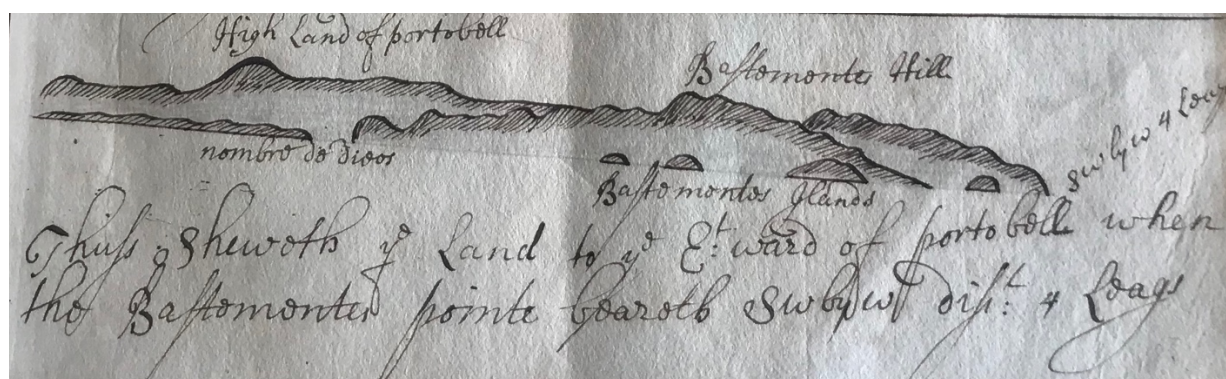 High Land of portobell
Bastementes Hill
nombre de dioos
Bastementes Ilands
SWbyW 4 Leag
Thuss Sheweth yᵉ Land to yᵉ Eᵗ: ward of portobell when
the Bastementes pointe beareth SWbyW disᵗ: 4 Leags